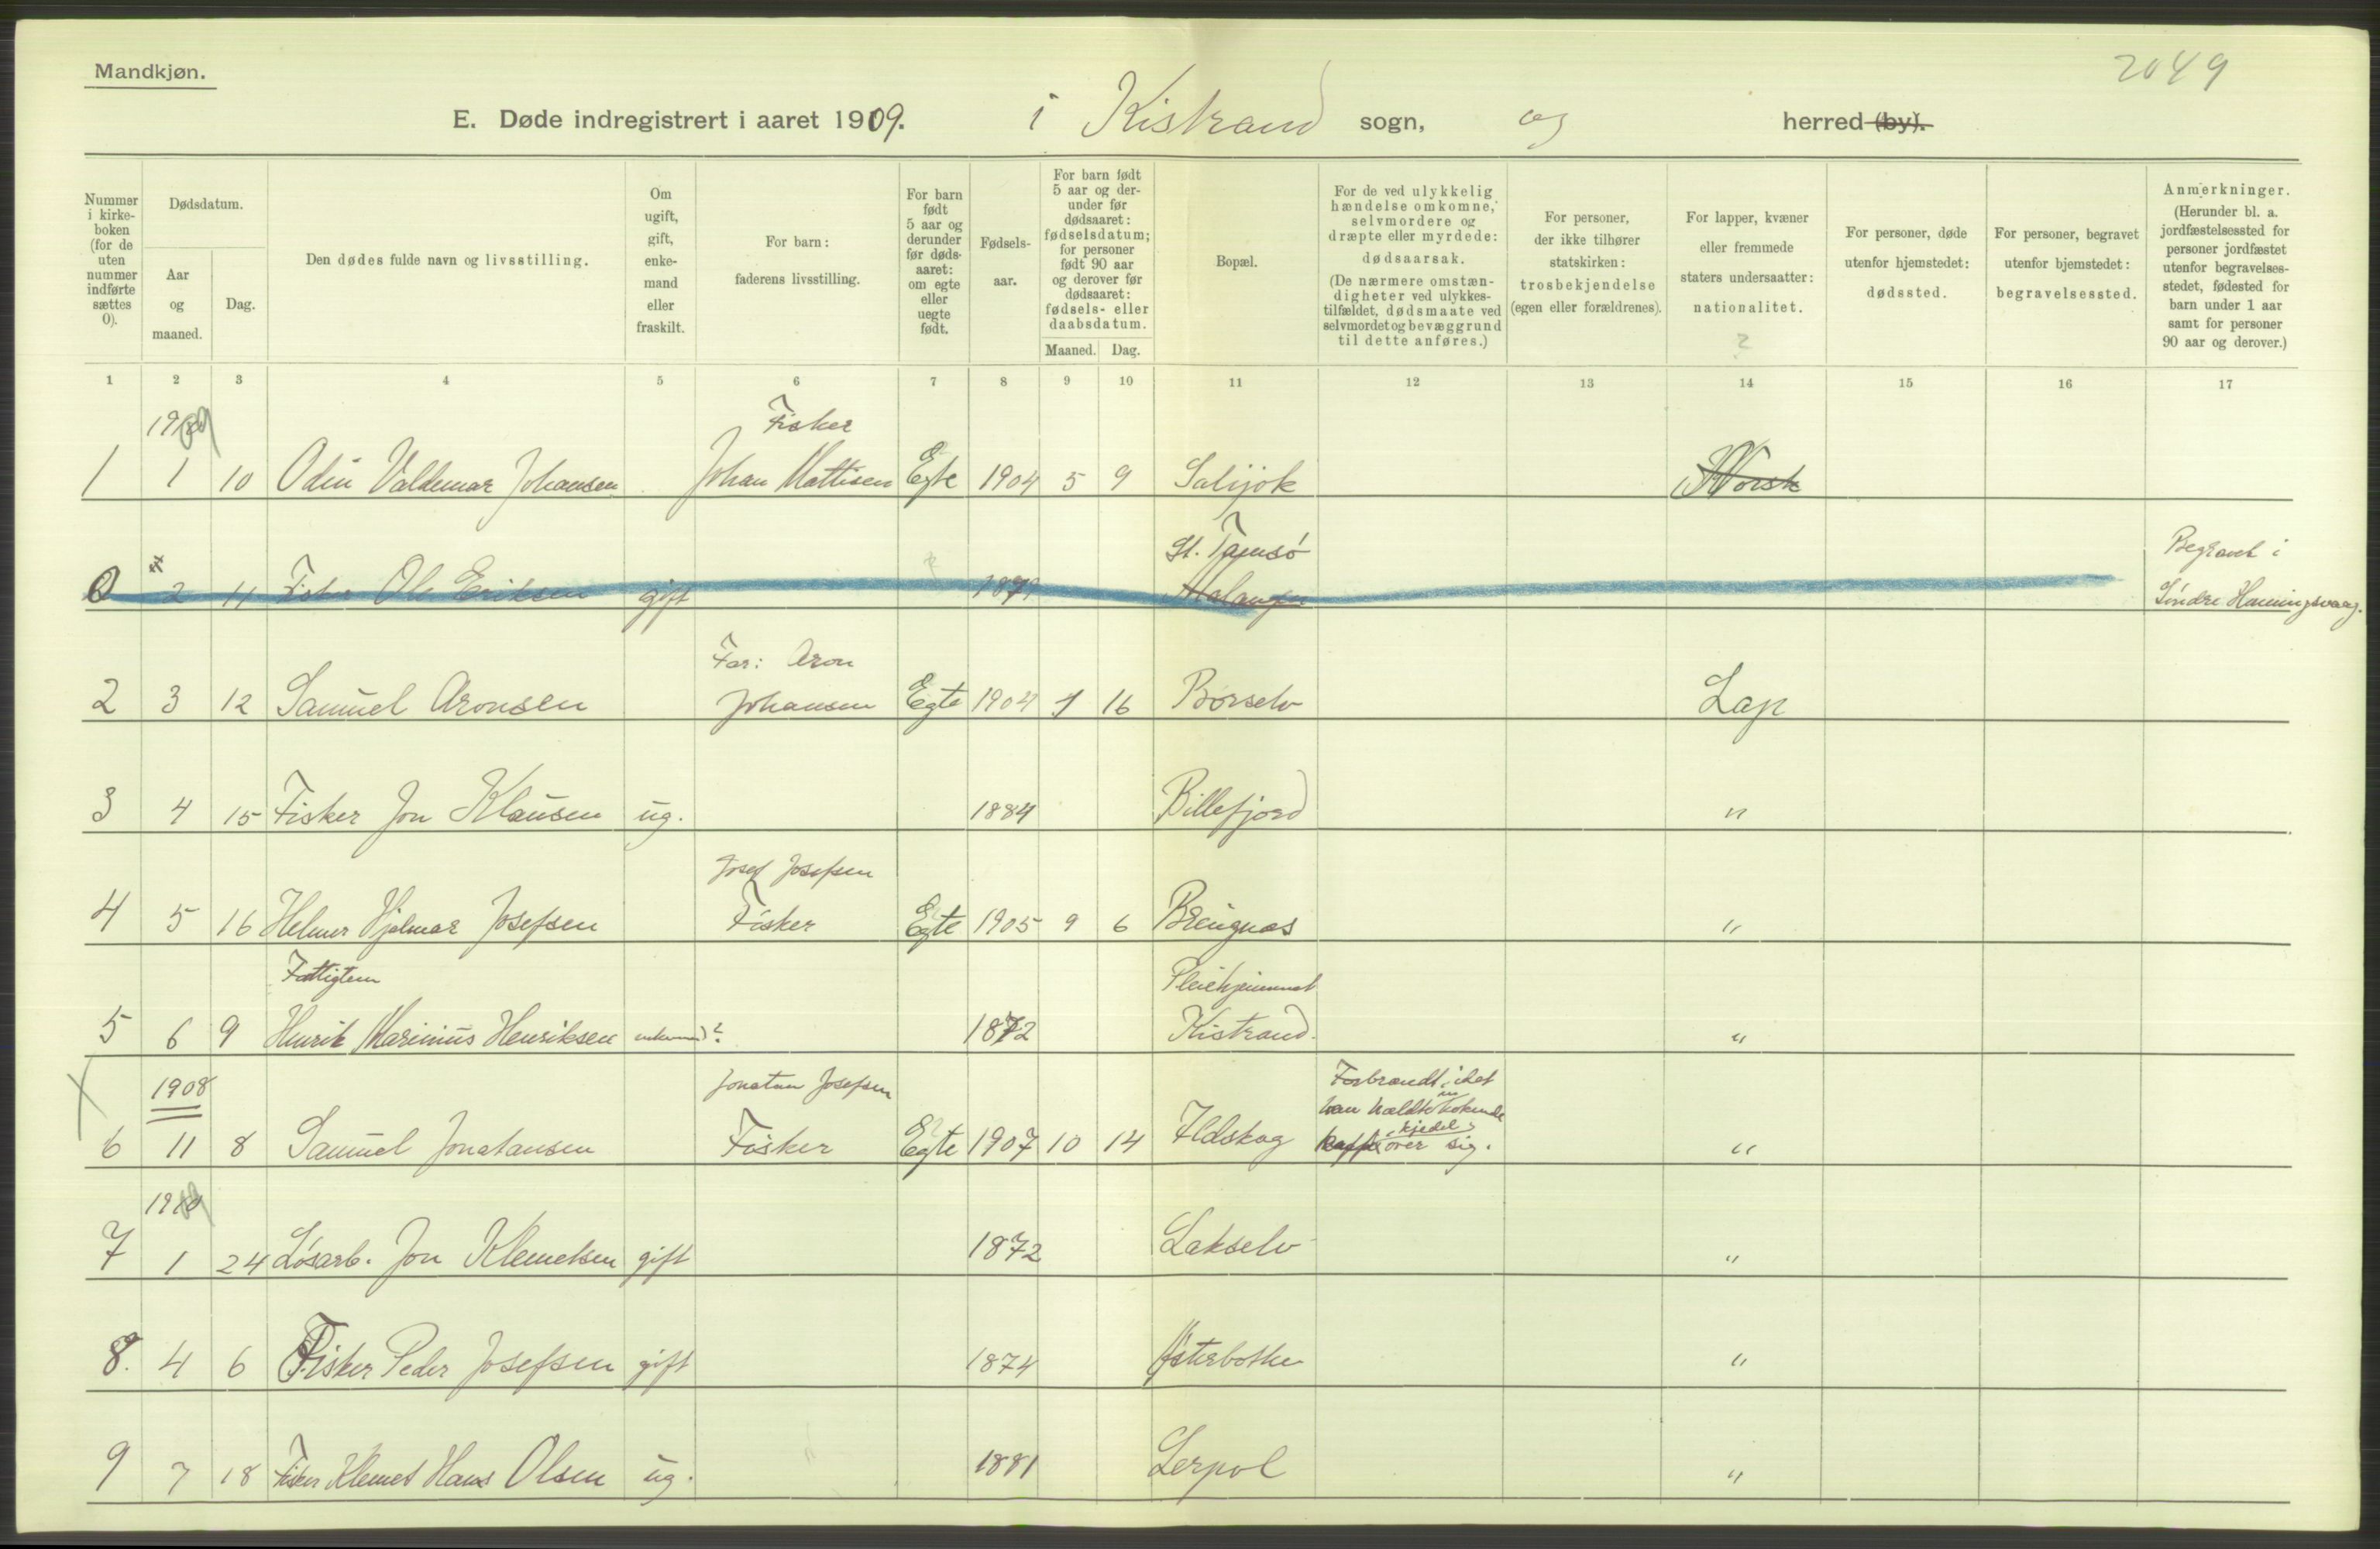 Mandkjøn.
2049
E. Døde indregistrert i aaret 1909. i Kistrand sogn, og herred (by).
Nummer i kirkeboken (for de uten nummer indførte sættes 0).
Dødsdatum.
Aar og maaned.
Dag.
Den dødes fulde navn og livsstilling.
Om ugift, gift, enkemand eller fraskilt.
For barn: faderens livsstilling.
For barn født 5 aar og derunder før dødsaaret: om egte eller uegte født.
Fødselsaar.
For barn født 5 aar og derunder før dødsaaret: fødselsdatum; for personer født 90 aar og derover før dødsaaret: fødsels- eller daabsdatum.
Maaned. Dag.
Bopæl.
For de ved ulykkelig hændelse omkomne, selvmordere og dræpte eller myrdede: dødsaarsak. (De nærmere omstændigheter ved ulykkestilfældet, dødsmaate ved selvmordet og bevæggrund til dette anføres.)
For personer, der ikke tilhører statskirken: trosbekjendelse (egen eller forældrenes).
For lapper, kvæner eller fremmede staters undersaatter: nationalitet.
?
For personer, døde utenfor hjemstedet: dødssted.
For personer, begravet utenfor bjemstedet: begravelsessted.
Anmerkninger. (Herunder bl. a. jordfæstelsessted for personer jordfæstet utenfor begravelsesstedet, fødested for barn under 1 aar samt for personer 90 aar og derover.)
1 2 3 4 5 6 7 8 9 10 11 12 13 14 15 16 17
Fisker
1 1 10 Odin Valdemar Johansen Johan Mattisen Egte 1904 5 9 Salijok Norsk
St. Tamsø Begravet i
0 2 11 Fisker Ole Eriksen gift 1871 Søndre Honningsvaag.
Far: Aron
2 3 12 Samuel Aronsen Johansen Egte 1904 1 16 Børselv Lap
3 4 15 Fisker Jon Klausen ug. 1884 Billefjord "
Josef Josefsen
4 5 16 Helmer Hjalmar Josefsen Fisker Egte 1905 9 6 Brengnes "
Fattiglem Pleiehjemmet
5 6 9 Henrik Marinius Henriksen enkemand? 1872 Kistrand "
1908 Jonatan Josefsen Forbrændt, idet
han hældte en kokende
6 11 8 Samuel Jonatansen Fisker Egte 1907 10 14 Ildskog kaffekjedel over sig. "
7 1 24 Løsarb. Jon Klemetsen gift 1872 Lakselv "
8. 4 6 Fisker Peder Josefsen gift 1874 Østerbotten "
9 7 18 Fisker Klemet Hans Olsen ug. 1881 Lerpol "